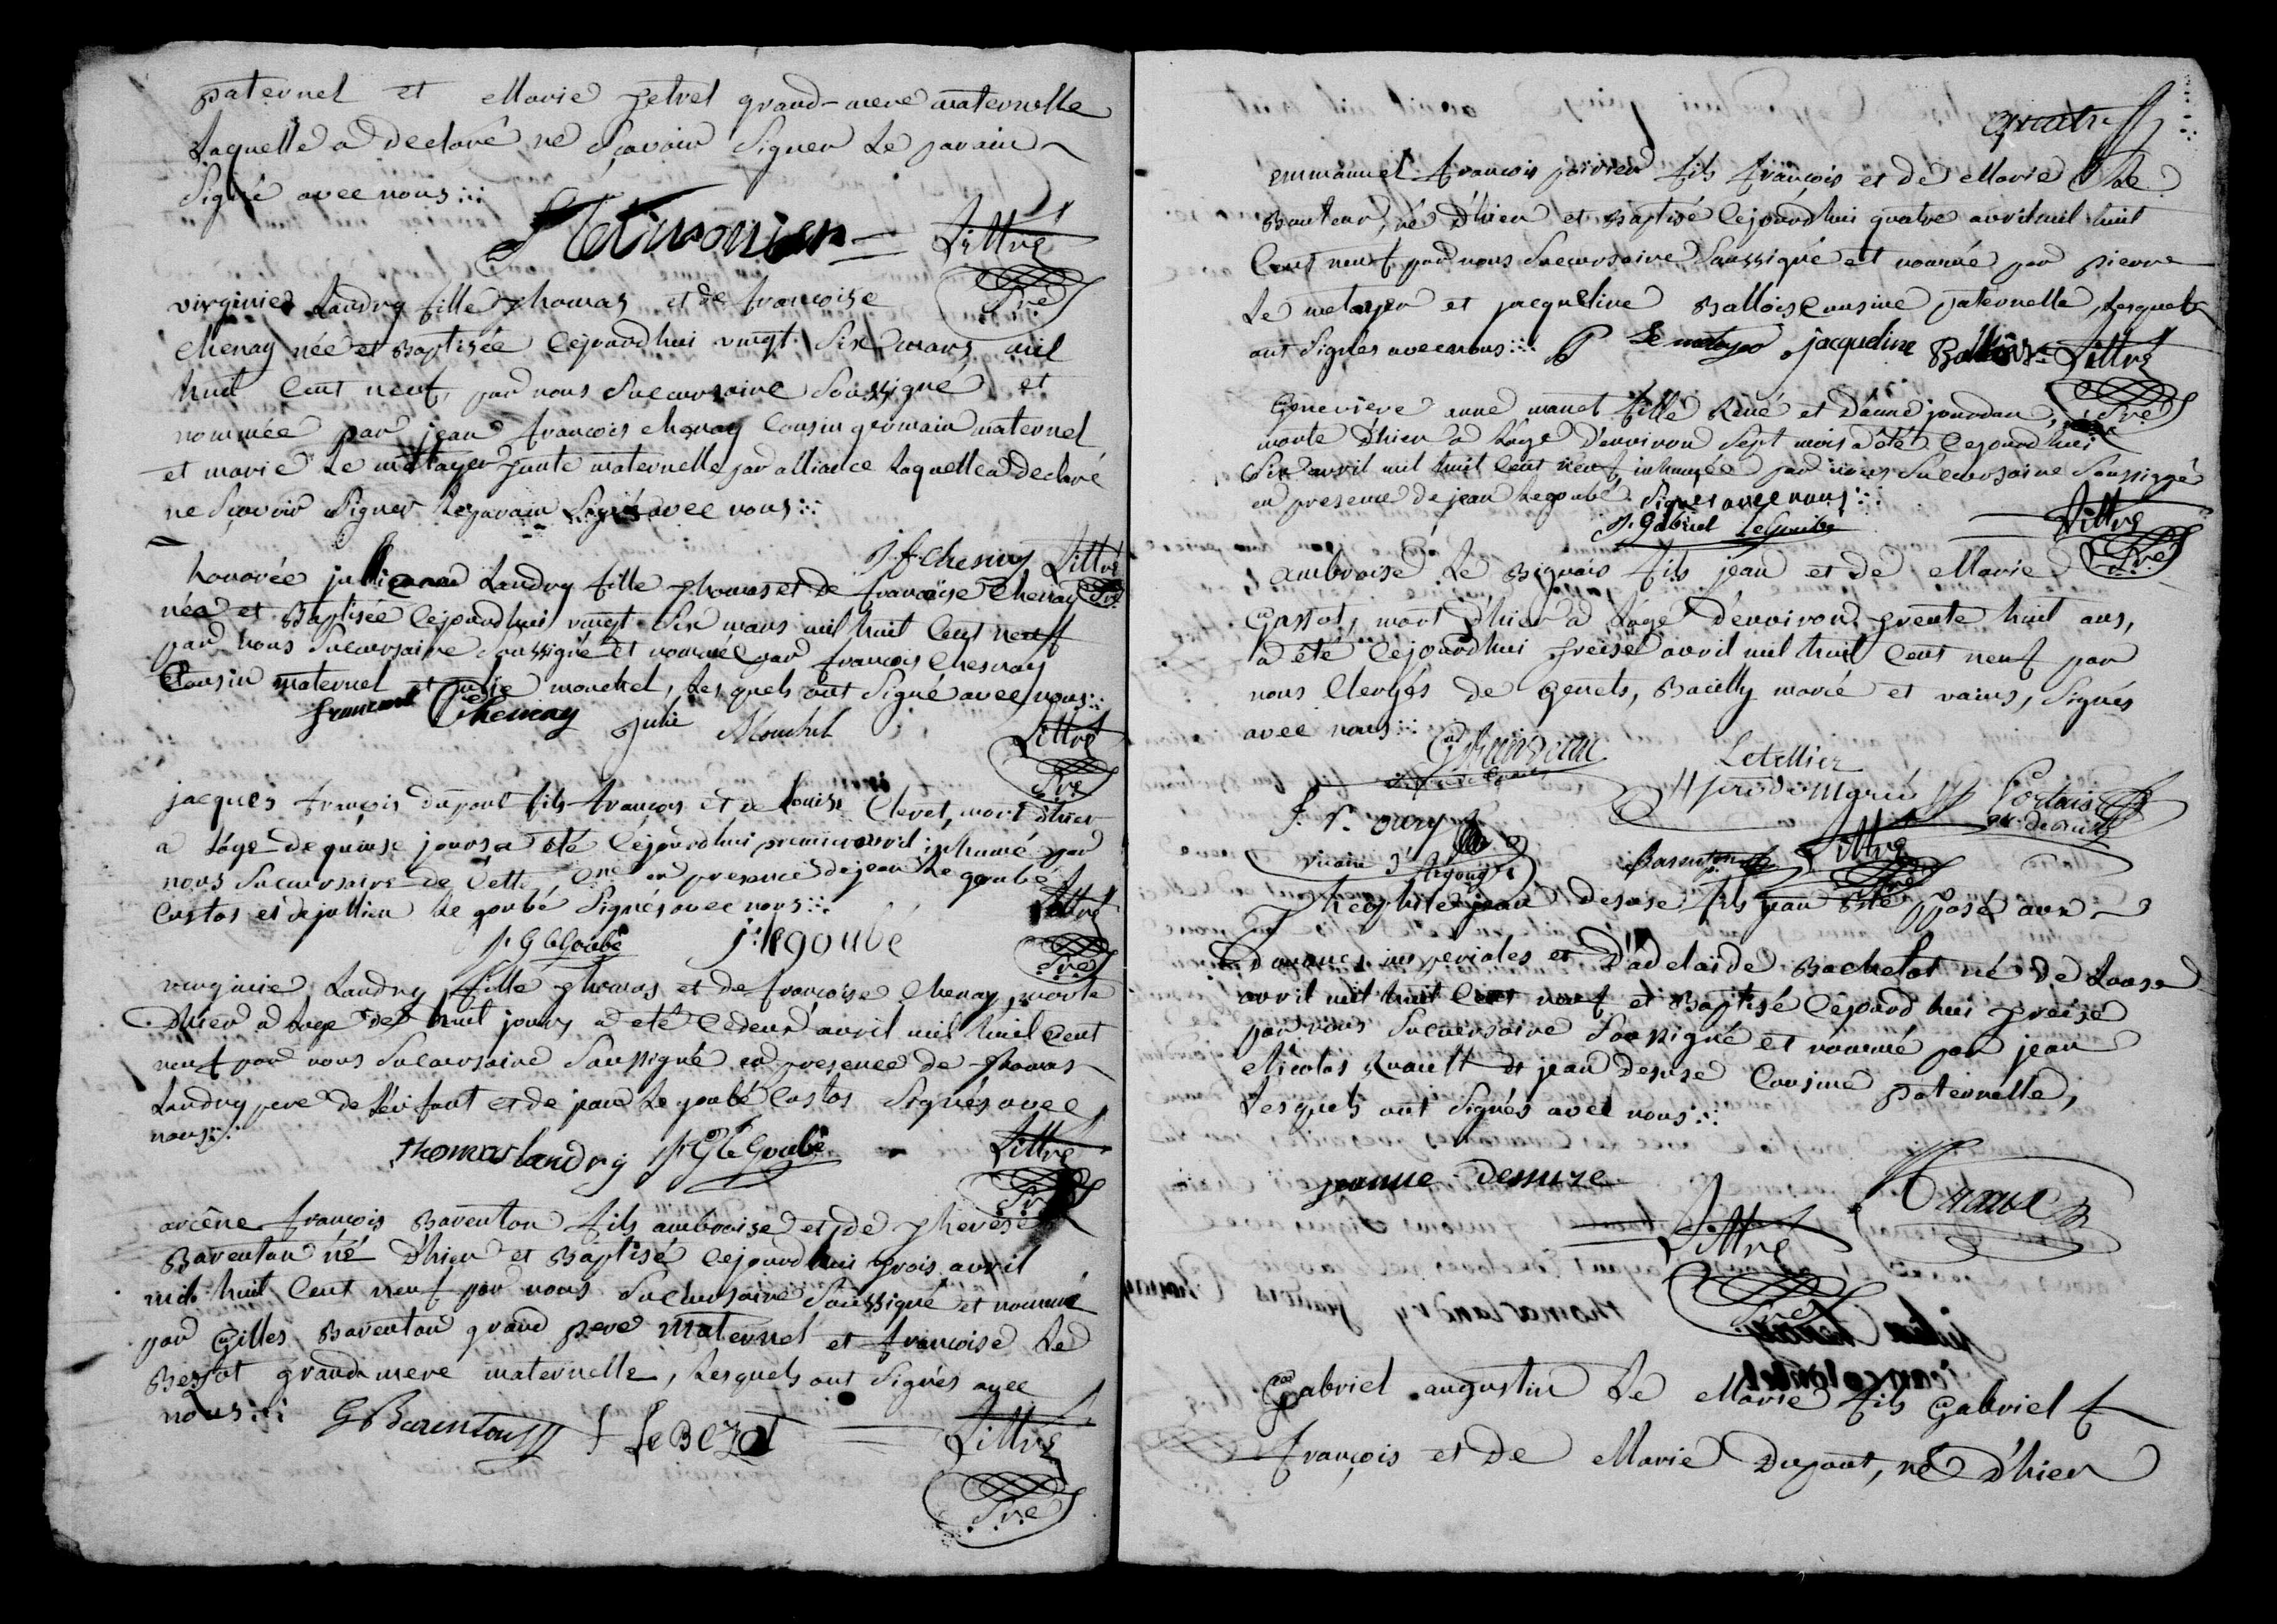 paternel et Marie petrel grand-mere maternelle
Laquelle a declaré ne Sçavoir Signer Le parain
Signé avec nous
Littré
Pre
virginie Landry fille thomas et de françoise
Chenay née et Baptisée Cejourdhui vingt Six mars mil
huit Cent neuf, par nous Sucursaire Soussigné et
nommée par jean françois chenay Cousin germain maternel
et marie Le metayer tante maternelle par alliance Laquelle a declaré
ne Sçavoir Signer Le parain Signé avec nous
j. f. chesnay Littré
honorée julienne Landry fille thomas et de françoise Chenay Pre
née et Baptisée Cejourdhui vingt Six mars mil huit Cent neuf
par nous Sucursaire Soussigné et nommé par françois Chesnay
Cousin maternel et julie mouchel, Lesquels ont Signé avec nous
francois Chesnay julie Mouchel
Littré
Pre
jacques françois dupont fils françois et de Louise Clevet, mort d'hier
a L'age de quinse jours a été Cejourdhui premier avril inhumé par
nous Sucursaire de Cette Cne en presence de jean Le goubé
Custos et de jullien Le goubé Signés avec nous
Littré
j. G leGoubé j. legoube
Pre
virginie Landry fille thomas et de françoise Chenay, morte
D'hier a L'age de huit jours a eté Ce deux avril mil huit Cent
neuf par nous Sucursaire Soussigné en presence de thomas
Landry pere de L'enfant et de jean Le goubé Custos Signés avec
nous
thomas landry j. G leGoubé Littré
Pre
arcène françois Barenton fils ambroise et de therese
Barenton né D'hier et Baptisé Cejourdhui trois avril
mil huit Cent neuf par nous Sucursaire Soussigné et nommé
par Gilles Barenton grand pere maternel et françoise Le
Bezot grand mere maternelle, Lesquels ont Signés avec
nous
G Barenton f Le Bezot Littré
Pre
quatre
emmanuel françois poirier fils françois et de Marie Le
Bauteur, né D'hier et Baptisé Cejourdhui quatre avril mil huit
Cent neuf par nous Sucursaire Soussigné et nommé par pierre
Le metayer et jacqueline Ballois Cousine paternelle, Lesquels
ont Signés avec nous P Le metayer jacqueline Ballois Littré
Pre
Genevieve anne manet fille René et D'anne jourdan,
morte D'hier a L'age D'environ Sept mois a été Cejourdhui
Six avril mil huit Cent neuf inhumée par nous Sucursaire Soussigné
en presence de jean Legoubé Signés avec nous
j. Gabriel LeGoubé Littré
Pre
ambroise Le Bignais fils jean et de Marie
Gastot, mort d'hier a L'age D'environ trente huit ans,
a été Cejourdhui treise avril mil huit Cent neuf par
nous Clergés de Genets, Bacilly marcé et vains, Signés
avec nous
Letellier
Barenton Littré
Pre
Theophile jean Desuse fils jean Bte pposé aux
Douanes imperiales et D'adelaïde Bachelot né de
avril mil huit Cent neuf et Baptisé Cejourdhui treise
par nous Sucursaire Soussigné et nommé par jean
Nicolas et jean Desuse Cousine paternelle,
Lesquels ont Signés avec nous
jeanne desuze
Littré
Pre
Gabriel augustin Le Marié fils Gabriel f
françois et de Marie Dupont, né D'hier